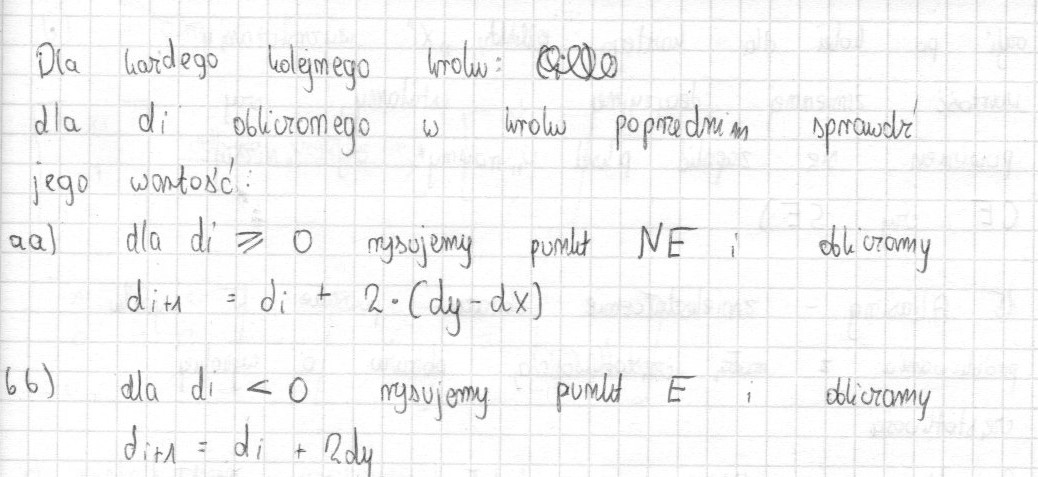 Dla każdego kolejnego kroku:
dla di obliczonego w kroku poprzednim sprawdź
jego wartość:
aa) dla di ⩾ 0 rysujemy punkt NE i obliczamy
di+1 = di + 2·(dy-dx)
bb) dla di < 0 rysujemy punkt E i obliczamy
di+1 = di + 2dy